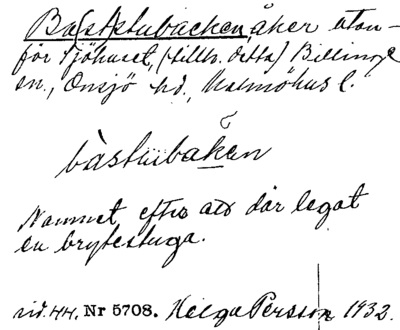 Ba(st)stubacken, åker utan-
för Sjöhuset, (tillh. detta) Billinge
sn., Onsjö hd., Malmöhus l.
bastubaken
Namnet efter att där legat
en brytestuga.
sid. 44. Nr 5708. Helga Persson 1932.